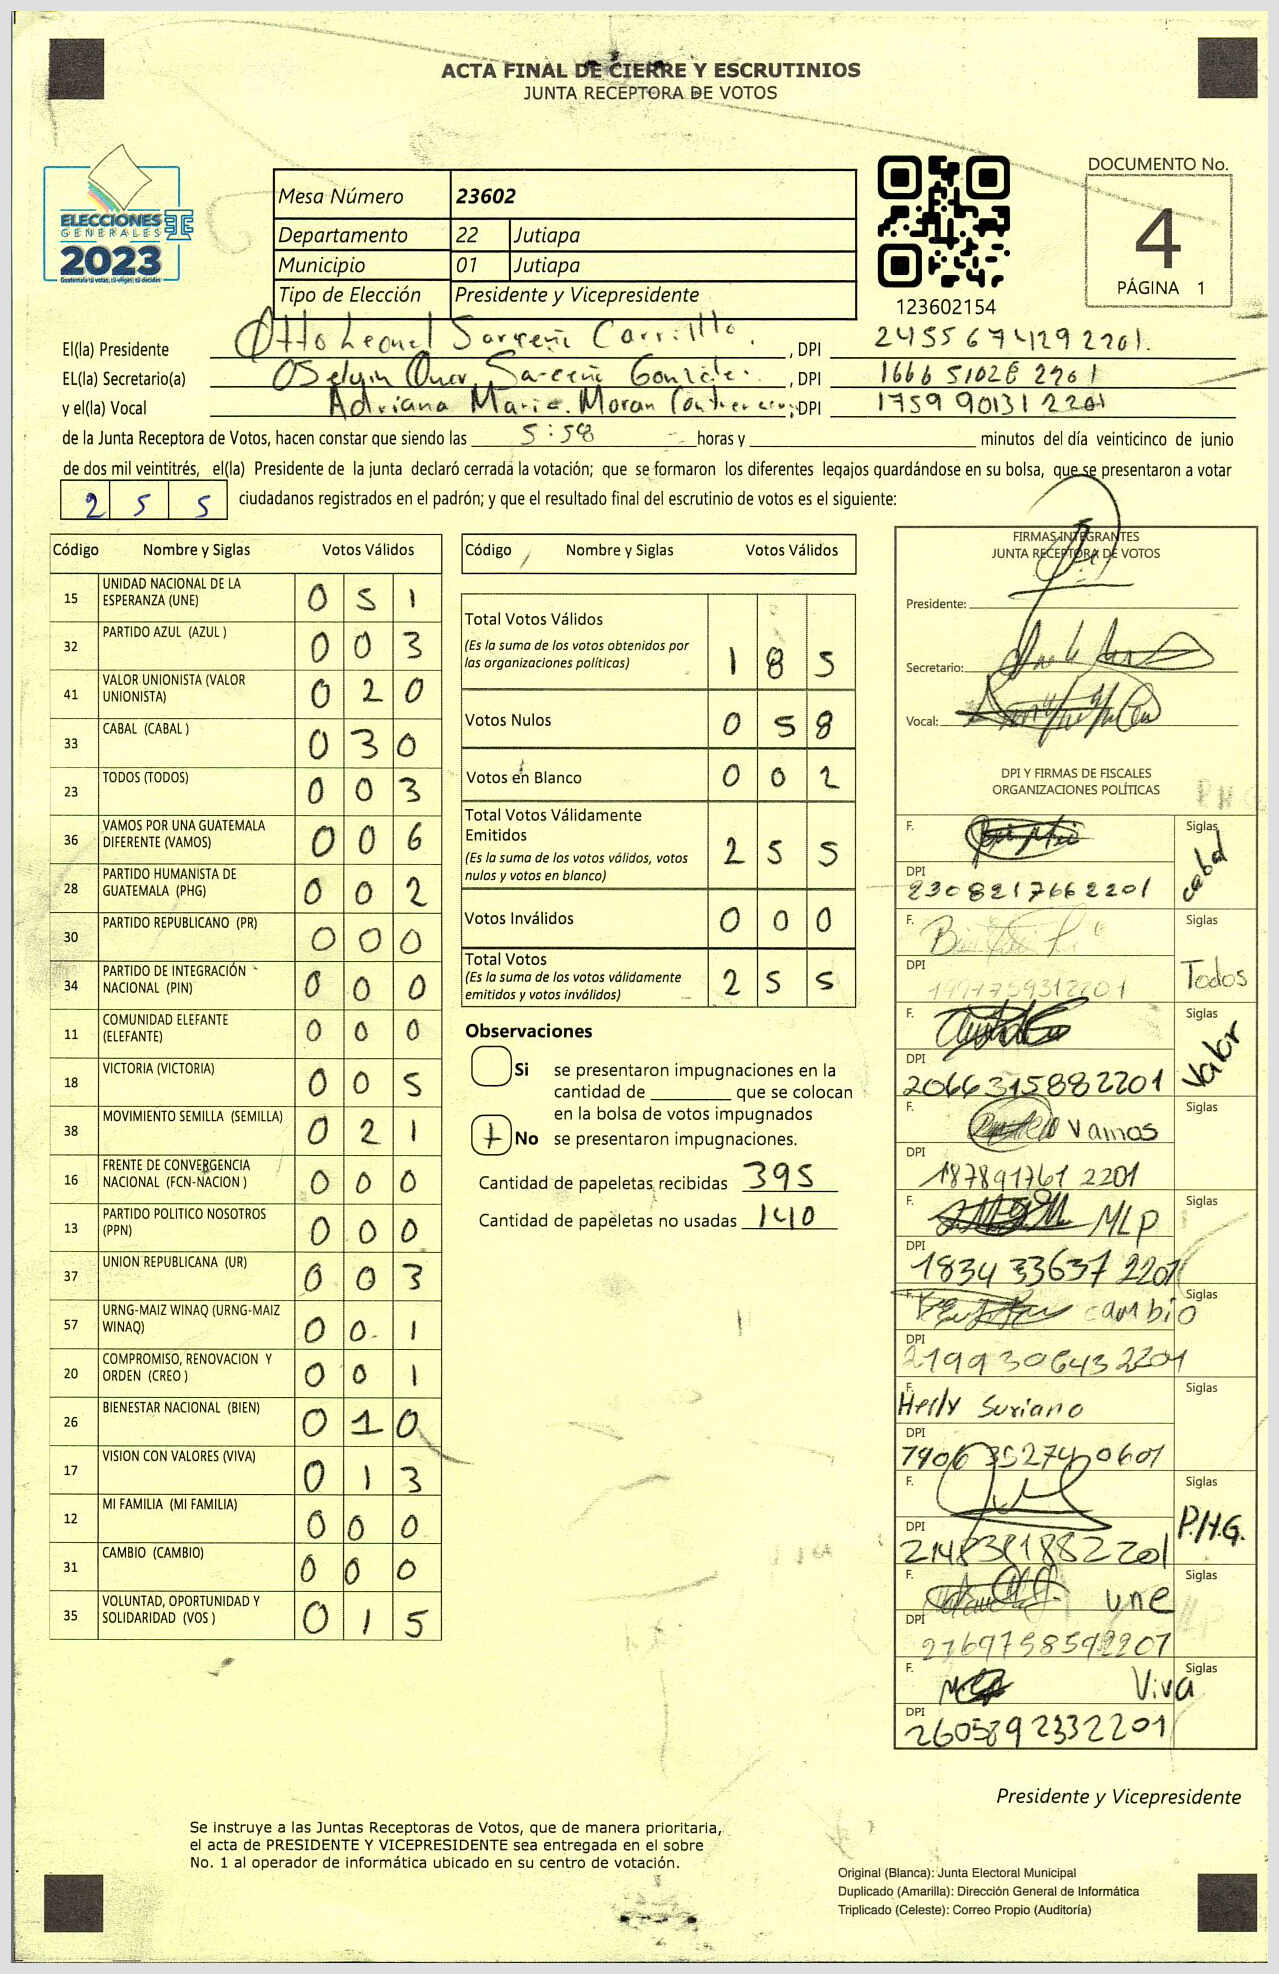 ACTA FINAL DE CIERRE Y ESCRUTINIOS
JUNTA RECEPTORA DE VOTOS
ELECCIONES
GENERALES
2023
Mesa Número 23602
Departamento 22 Jutiapa
Municipio 01 Jutiapa
Tipo de Elección Presidente y Vicepresidente
123602154
DOCUMENTO No.
4
PÁGINA 1
El(la) Presidente Otto Leonel Sarceño Carrillo. , DPI 2455674292201.
EL(la) Secretario(a) Sarceño Gonzále. , DPI 1666 51028 2201
y el(la) Vocal Adriana Maria Moran Contreras ,DPI 1759 90131 2201
de la Junta Receptora de Votos, hacen constar que siendo las 5:58 horas y minutos del día veinticinco de junio
de dos mil veintitrés, el(la) Presidente de la junta declaró cerrada la votación; que se formaron los diferentes legajos guardándose en su bolsa, que se presentaron a votar
2 5 5 ciudadanos registrados en el padrón; y que el resultado final del escrutinio de votos es el siguiente:
Código Nombre y Siglas Votos Válidos
15 UNIDAD NACIONAL DE LA ESPERANZA (UNE) 0 5 1
32 PARTIDO AZUL (AZUL ) 0 0 3
41 VALOR UNIONISTA (VALOR UNIONISTA) 0 2 0
33 CABAL (CABAL ) 0 3 0
23 TODOS (TODOS) 0 0 3
36 VAMOS POR UNA GUATEMALA DIFERENTE (VAMOS) 0 0 6
28 PARTIDO HUMANISTA DE GUATEMALA (PHG) 0 0 2
30 PARTIDO REPUBLICANO (PR) 0 0 0
34 PARTIDO DE INTEGRACIÓN NACIONAL (PIN) 0 0 0
11 COMUNIDAD ELEFANTE (ELEFANTE) 0 0 0
18 VICTORIA (VICTORIA) 0 0 5
38 MOVIMIENTO SEMILLA (SEMILLA) 0 2 1
16 FRENTE DE CONVERGENCIA NACIONAL (FCN-NACION ) 0 0 0
13 PARTIDO POLITICO NOSOTROS (PPN) 0 0 0
37 UNION REPUBLICANA (UR) 0 0 3
57 URNG-MAIZ WINAQ (URNG-MAIZ WINAQ) 0 0 1
20 COMPROMISO, RENOVACION Y ORDEN (CREO ) 0 0 1
26 BIENESTAR NACIONAL (BIEN) 0 1 0
17 VISION CON VALORES (VIVA) 0 1 3
12 MI FAMILIA (MI FAMILIA) 0 0 0
31 CAMBIO (CAMBIO) 0 0 0
35 VOLUNTAD, OPORTUNIDAD Y SOLIDARIDAD (VOS ) 0 1 5
Código Nombre y Siglas Votos Válidos
Total Votos Válidos 1 8 5
(Es la suma de los votos obtenidos por
las organizaciones políticas)
Votos Nulos 0 5 8
Votos en Blanco 0 0 2
Total Votos Válidamente
Emitidos 2 5 5
(Es la suma de los votos válidos, votos
nulos y votos en blanco)
Votos Inválidos 0 0 0
Total Votos 2 5 5
(Es la suma de los votos válidamente
emitidos y votos inválidos)
Observaciones
Si se presentaron impugnaciones en la
cantidad de ________ que se colocan
en la bolsa de votos impugnados
No se presentaron impugnaciones.
Cantidad de papeletas recibidas 395
Cantidad de papeletas no usadas 140
FIRMAS INTEGRANTES
JUNTA RECEPTORA DE VOTOS
Presidente:
Secretario:
Vocal:
DPI Y FIRMAS DE FISCALES
ORGANIZACIONES POLÍTICAS
F. Siglas cabal
DPI 2308217662201
F. Siglas Todos
DPI
F. Siglas Valor
DPI 2066315882201
F. Vamos Siglas
DPI 187891761 2201
F. MLP Siglas
DPI 1834 33637 2201
F. cambio Siglas
DPI 2199306432201
F. Herly Suriano Siglas
DPI
F. Siglas P.H.G.
DPI
F. une Siglas
DPI
F. Viva Siglas
DPI 2605892332201
Presidente y Vicepresidente
Se instruye a las Juntas Receptoras de Votos, que de manera prioritaria,
el acta de PRESIDENTE Y VICEPRESIDENTE sea entregada en el sobre
No. 1 al operador de informática ubicado en su centro de votación.
Original (Blanca): Junta Electoral Municipal
Duplicado (Amarilla): Dirección General de Informática
Triplicado (Celeste): Correo Propio (Auditoría)